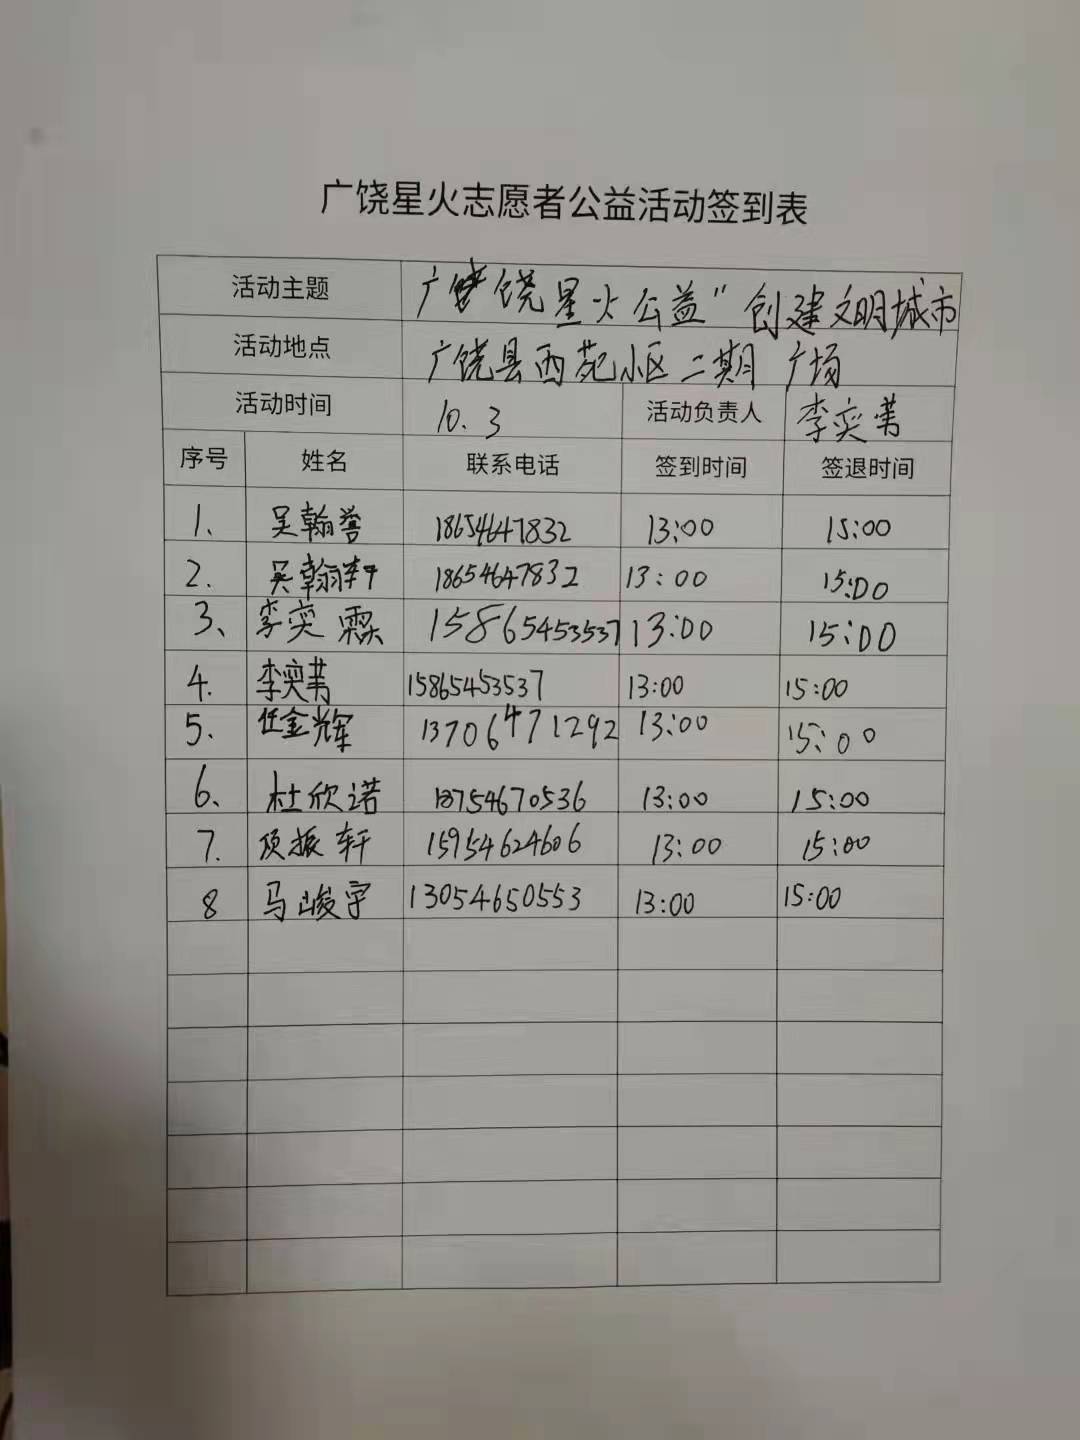 广饶星火志愿者公益活动签到表
活动主题 广饶星火公益"创建文明城市
活动地点 广饶县西苑小区二期广场
活动时间 10.3 活动负责人 李奕菁
序号 姓名 联系电话 签到时间 签退时间
1. 吴翰誉 18654647832 13:00 15:00
2. 吴翰轩 18654647832 13:00 15:00
3、 李奕霖 15865453537 13:00 15:00
4. 李奕菁 15865453537 13:00 15:00
5. 任金辉 13706471292 13:00 15:00
6、 杜欣诺 18754670536 13:00 15:00
7. 振轩 15954624606 13:00 15:00
8 马峻宇 13054650553 13:00 15:00